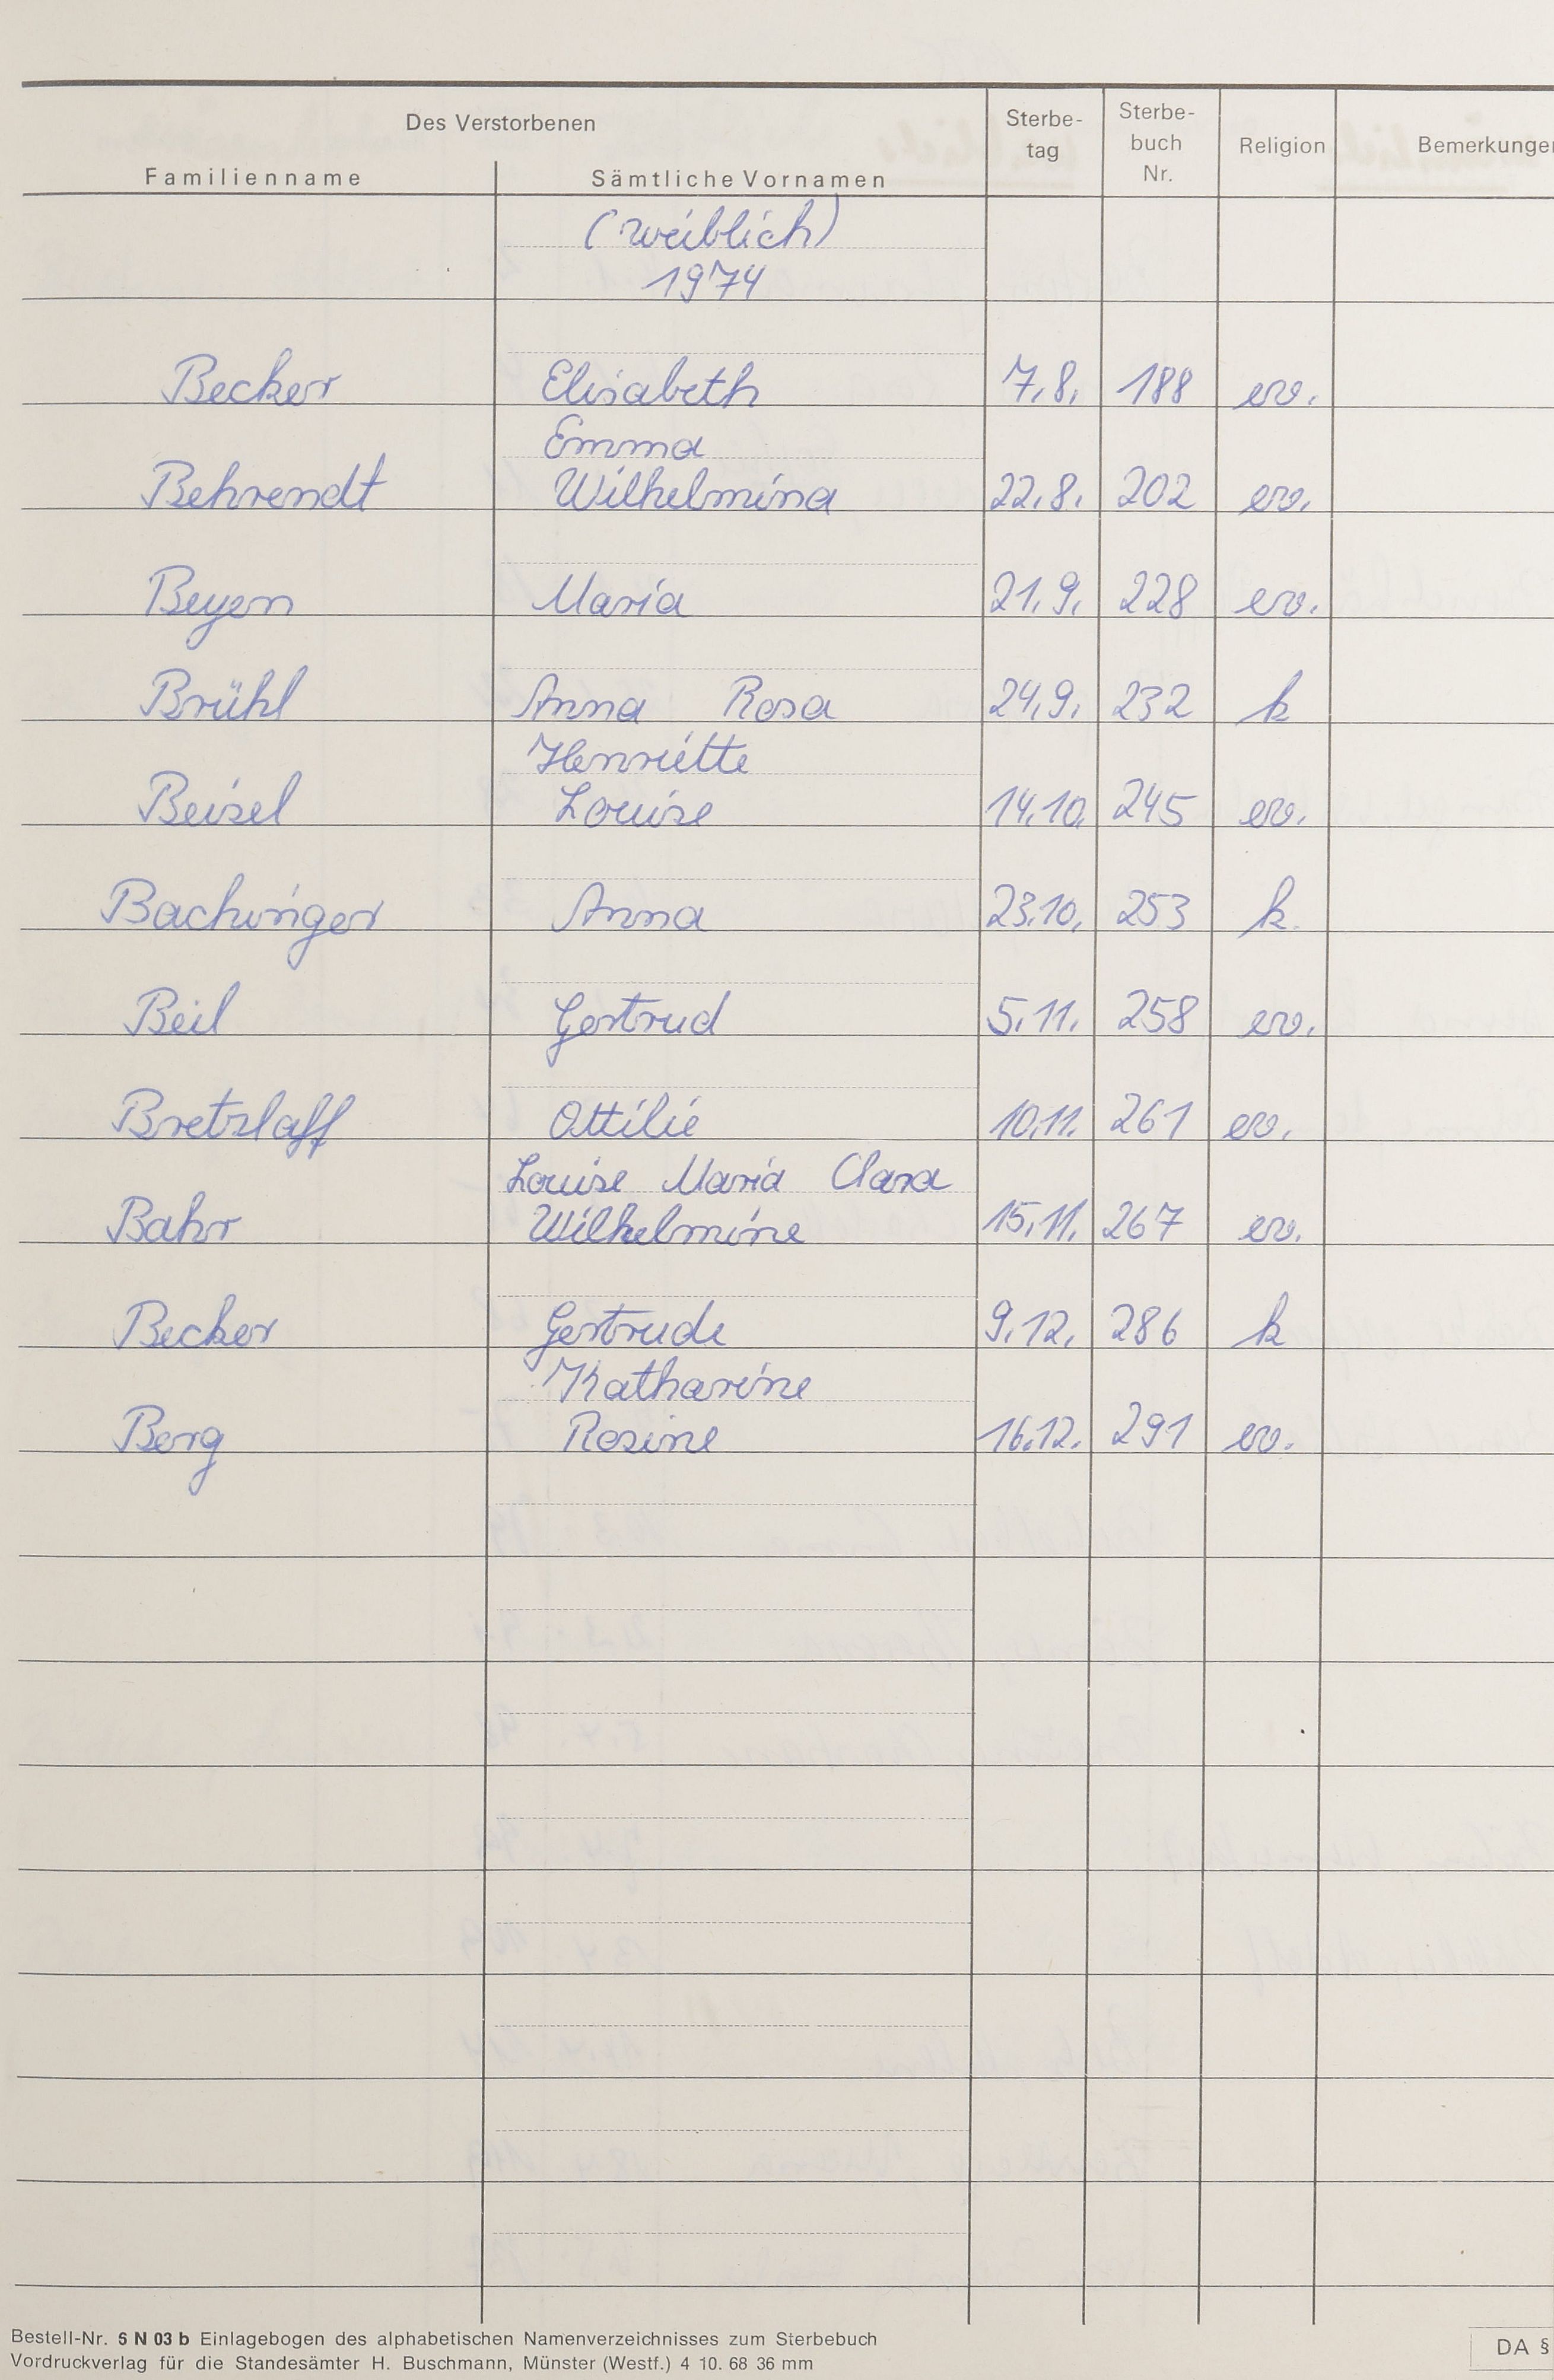 Des Verstorbenen
Familienname Sämtliche Vornamen Sterbe-
tag Sterbe-
buch
Nr. Religion Bemerkungen
(weiblich)
1974
Becker Elisabeth 7.8. 188 ev.
Emma
Behrendt Wilhelmina 22.8. 202 ev.
Beyen Maria 21.9. 228 ev.
Brühl Anna Rosa 24.9. 232 k
Henriette
Beisel Louise 14.10. 245 ev.
Bachinger Anna 23.10. 253 k.
Beil Gertrud 5.11. 258 ev.
Bretzlaff Ottilie 10.11. 261 ev.
Louise Maria Clara
Bahr Wilhelmine 15.11. 267 ev.
Becker Gertrude 9.12. 286 k
Katharine
Berg Rosine 16.12. 291 ev.
Bestell-Nr. 5 N 03 b Einlagebogen des alphabetischen Namenverzeichnisses zum Sterbebuch
Vordruckverlag für die Standesämter H. Buschmann, Münster (Westf.) 4 10. 68 36 mm
DA §